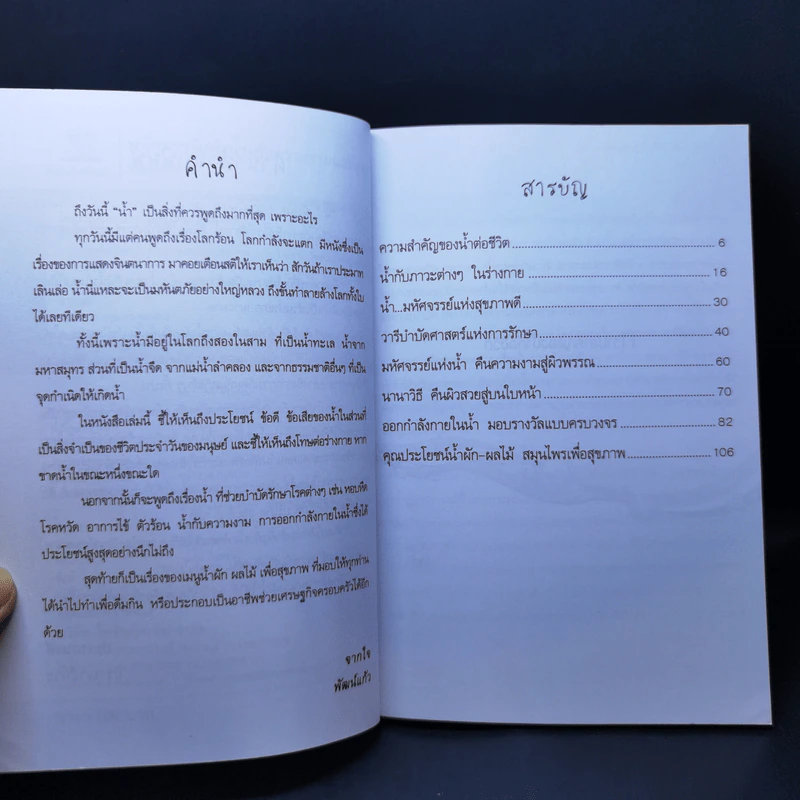 คำนำ
ถึงวันนี้ “น้ำ” เป็นสิ่งที่ควรพูดถึงมากที่สุด เพราะอะไร
ทุกวันนี้มีแต่คนพูดถึงเรื่องโลกร้อน โลกกำลังจะแตก มีหนังซึ่งเป็น
เรื่องของการแสดงจินตนาการ มาคอยเตือนสติให้เราเห็นว่า สักวันถ้าเราประมาท
เลินเล่อ น้ำนี่แหละจะเป็นมหันตภัยอย่างใหญ่หลวง ถึงขั้นทำลายล้างโลกทั้งใบ
ได้เลยทีเดียว
ทั้งนี้เพราะน้ำมีอยู่ในโลกถึงสองในสาม ที่เป็นน้ำทะเล น้ำจาก
มหาสมุทร ส่วนที่เป็นน้ำจืด จากแม่น้ำลำคลอง และจากธรรมชาติอื่นๆ ที่เป็น
จุดกำเนิดให้เกิดน้ำ
ในหนังสือเล่มนี้ ชี้ให้เห็นถึงประโยชน์ ข้อดี ข้อเสียของน้ำในส่วนที่
เป็นสิ่งจำเป็นของชีวิตประจำวันของมนุษย์ และชี้ให้เห็นถึงโทษต่อร่างกาย หาก
ขาดน้ำในขณะหนึ่งขณะใด
นอกจากนั้นก็จะพูดถึงเรื่องน้ำ ที่ช่วยบำบัดรักษาโรคต่างๆ เช่น หอบหืด
โรคหวัด อาการไข้ ตัวร้อน น้ำกับความงาม การออกกำลังกายในน้ำซึ่งได้
ประโยชน์สูงสุดอย่างนึกไม่ถึง
สุดท้ายก็เป็นเรื่องของเมนูน้ำผัก ผลไม้ เพื่อสุขภาพ ที่มอบให้ทุกท่าน
ได้นำไปทำเพื่อดื่มกิน หรือประกอบเป็นอาชีพช่วยเศรษฐกิจครอบครัวได้อีก
ด้วย
จากใจ
พัฒน์แก้ว
สารบัญ
ความสำคัญของน้ำต่อชีวิต 6
น้ำกับภาวะต่างๆ ในร่างกาย 16
น้ำ...มหัศจรรย์แห่งสุขภาพดี 30
วารีบำบัดศาสตร์แห่งการรักษา 40
มหัศจรรย์แห่งน้ำ คืนความงามสู่ผิวพรรณ 60
นานาวิธี คืนผิวสวยสู่บนใบหน้า 70
ออกกำลังกายในน้ำ มอบรางวัลแบบครบวงจร 82
คุณประโยชน์น้ำผัก-ผลไม้ สมุนไพรเพื่อสุขภาพ 106